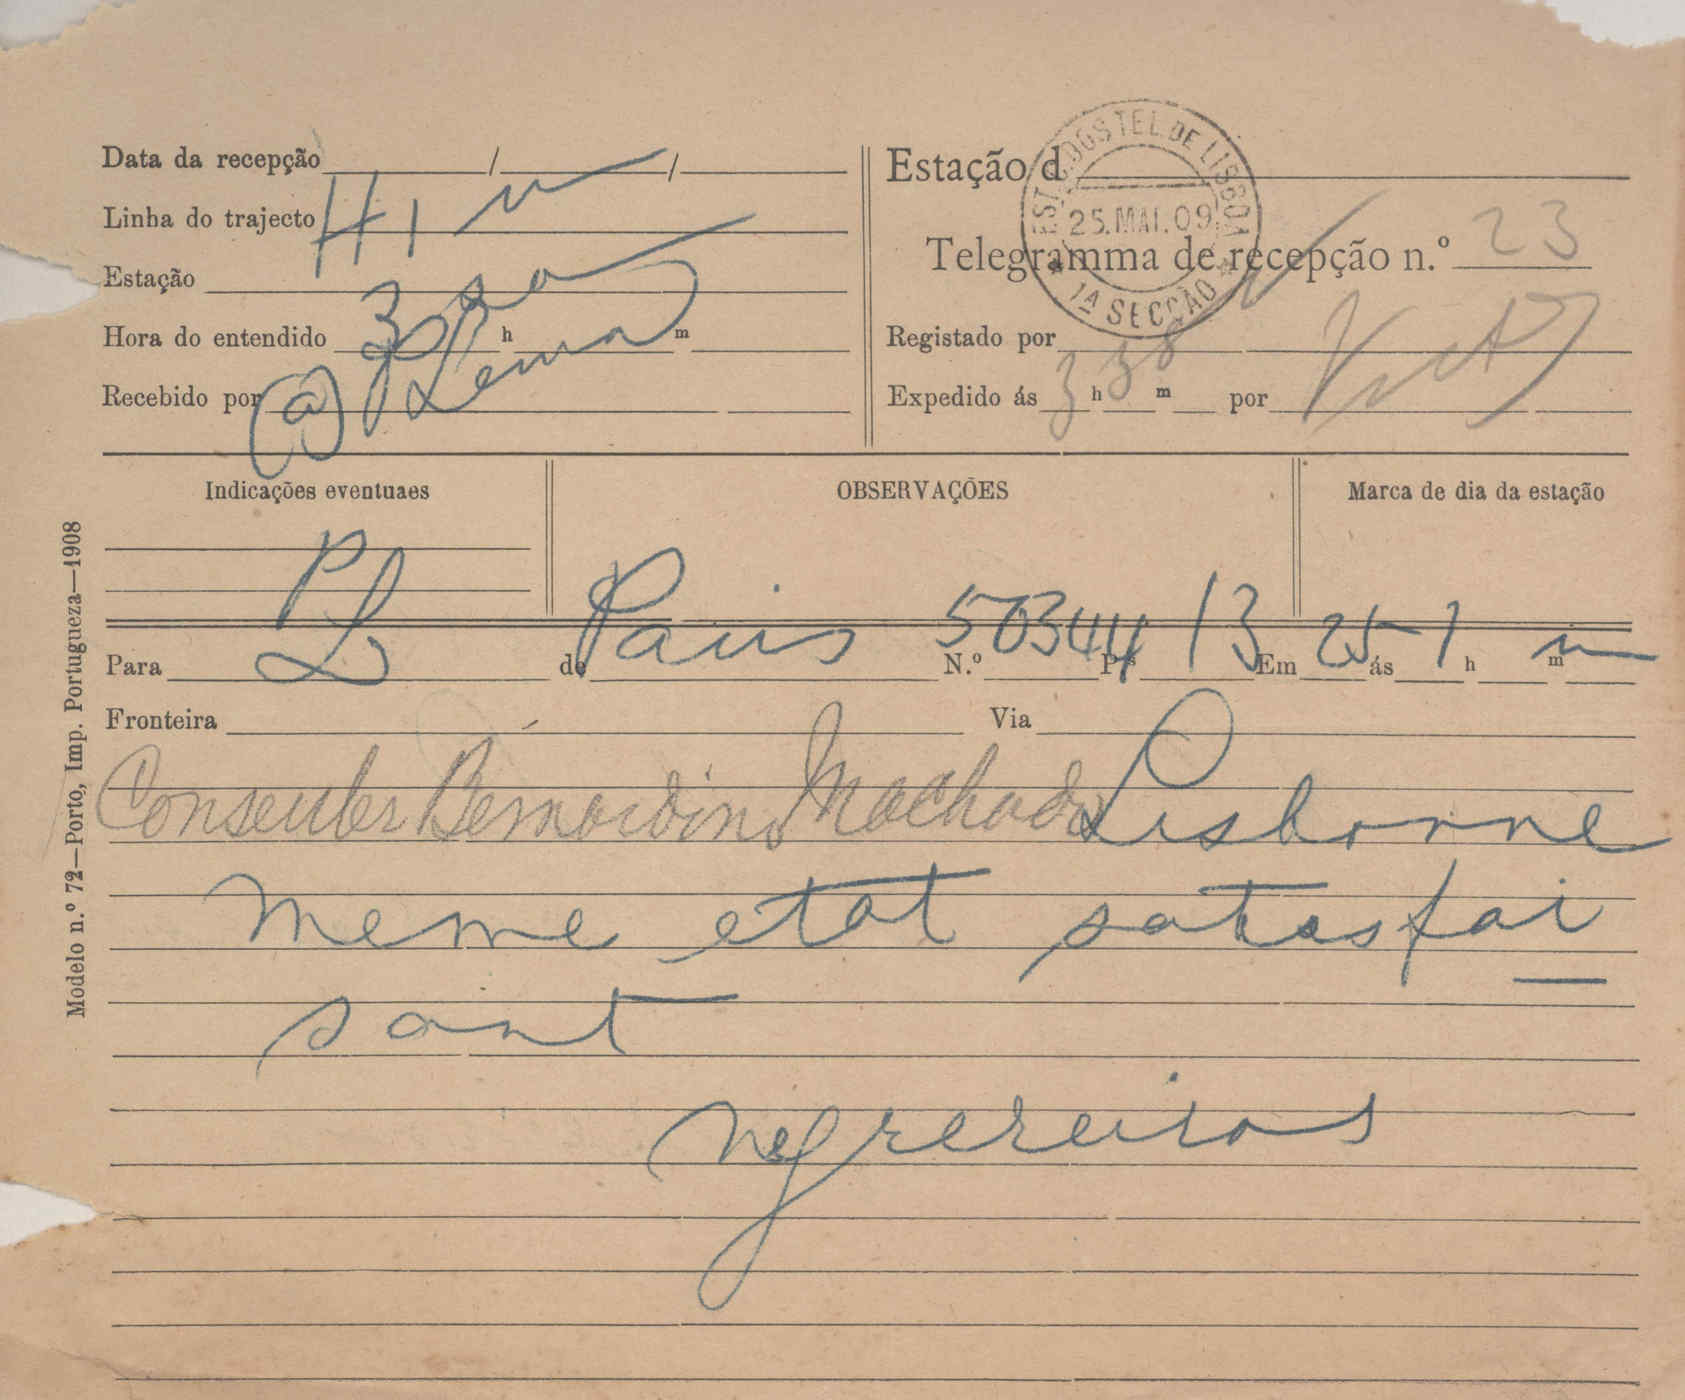 Data da recepção / /
Linha do trajecto
Estação
Hora do entendido 3 h m
Recebido por
Estação d
EST. DOS TEL. DE LISBOA
25.MAI.09
1ª SECÇÃO
Telegramma de recepção n.º 23
Registado por
Expedido ás 3 h 38 m por
Indicações eventuaes
OBSERVAÇÕES
Marca de dia da estação
P
Para L de Paris N.º 50344 P.as 13 Em 25 ás 1 h m
Fronteira Via
Bernardino Machado Lisbonne
meme etat satisfai
sant
negreiros
Modelo n.º 72—Porto, Imp. Portugueza—1908